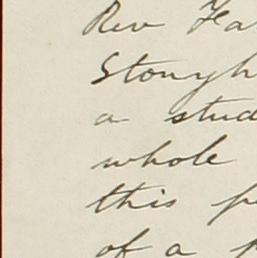 Rev Fa
Stonyh
a stud
whole
this pe
of a p